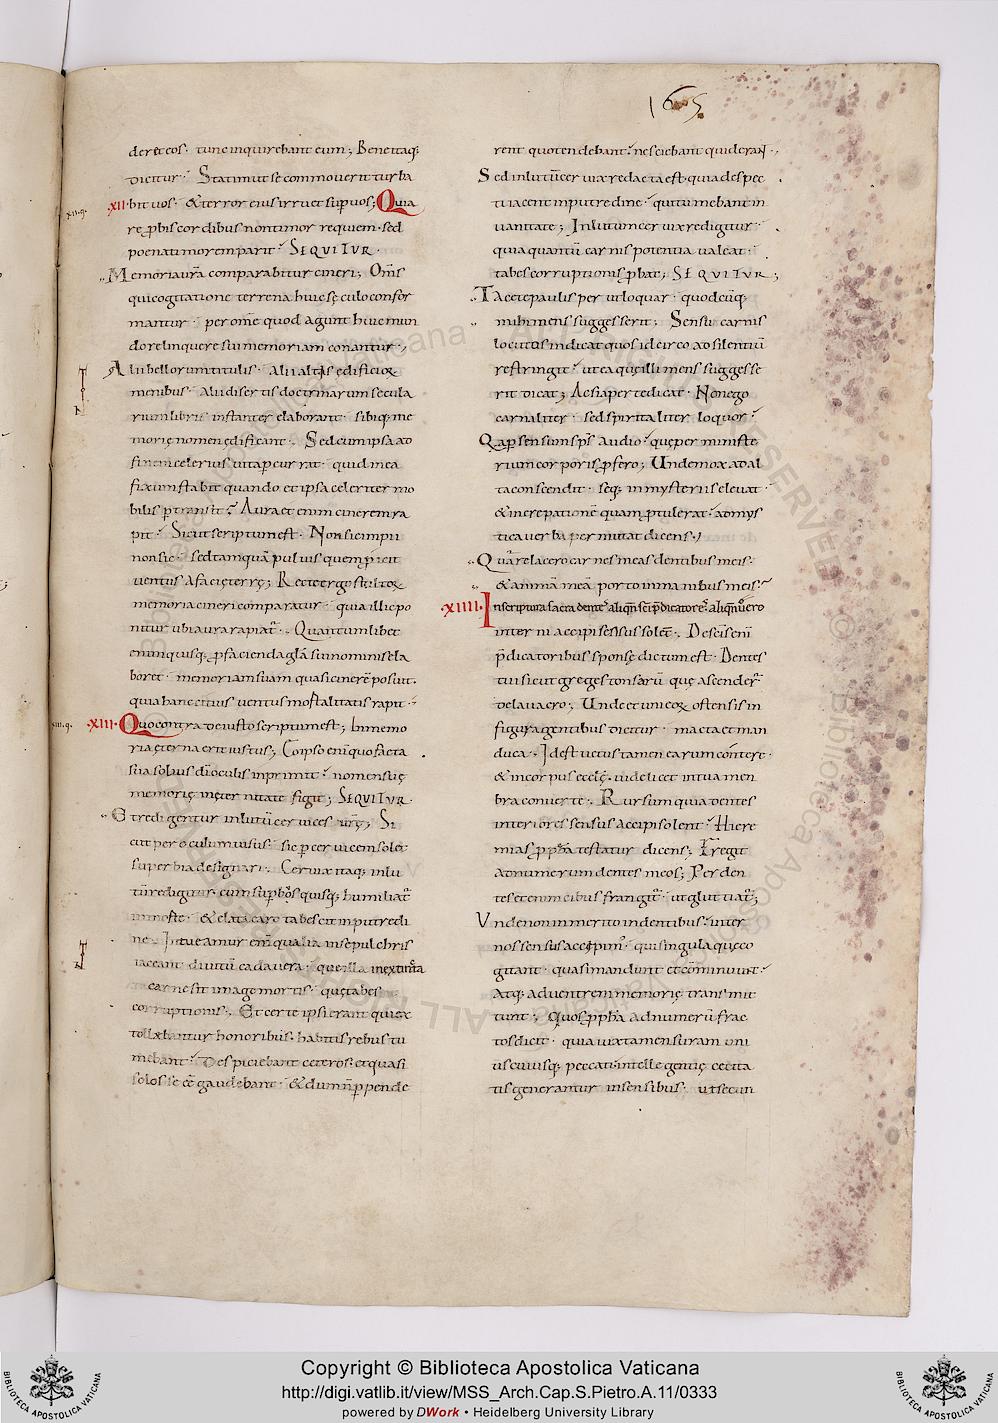 165
deret eos· tunc inquirebant eum; Bene itaq;
dicitur· Statim ut se commoverit turba
·XII· bit vos· & terror eius irruet sup vos; Quia
re pbis cordibus non timor requiem· sed
poena timorem parit· SEQUITUR·
Memoria vra comparabitur cineri; Oms
qui cogitatione terrena huic sęculo confor
mantur· per ome quod agunt huic mun
do relinquere sui memoriam conantur·
Alii bellorum titulis· Alii altis ędificiorum
menibus· Alii disertis doctrinarum secula
rium libris instanter elaborant· sibiq; me
morię nomen ędificant· Sed cum ipsa ad
finem celerius vita pcurrat· quid in ea
fixum stabit quando et ipsa celeriter mo
bilis ptransit? Aura etenim cinerem ra
pit· Sicut scriptum est· Non sic impii
non sic· sed tamquā pulvis quem pīcit
ventus a facie terrę; Recte ergo stultorum
memoria cineri comparatur· quia illic po
nitur ubi aura rapiat· Quantumlibet
enim quisq; p facienda gla sui nominis ela
boret· memoriam suam quasi cinerē posuit·
quia hanc citius ventus mortalitatis rapit·
·XIII· Quo contra de iusto scriptum est; In memo
ria ęterna erit iustus; Co ipso enī quo facta
sua solius di oculis inprimit· nomen suę
memorię in ęternitate figit; SEQUITUR·
Et redigentur in lutū cervices vrę; Si
cut per oculum visus· sic per cervicem solet
superbia designari· Cervix itaq; in lu
tū redigitur· cum supbus quisq; humiliat
in morte· & elata caro tabescit in putredi
ne· Intueamur eni qualia in sepulchris
iaceant divitū cadavera· que illa in extincta
carne sit imago mortis· quę tabes
corruptionis· Et certe ipsi erant qui ex
tollebantur honoribus· habitis rebus tu
mebant· Despiciebant ceteros· et quasi
solos se eē gaudebant· & dum n ppende
rent quo tendebant· nesciebant quid erant·
Sed in lutū cervix redacta est· quia despec
ti iacent in putredine· qui tumebant in
vanitate; In lutum cervix redigitur·
quia quantū carnis potentia valeat·
tabes corruptionis pbat; SEQUITUR;
Tacete paulisper ut loquar· quodcūq;
mihi mens suggesserit; Sensu carnis
locutos indicat quos idcirco ad silentiū
restringit· ut ea quę illi mens suggesse
rit dicat; Ac si aperte dicat· Non ego
carnaliter· sed spiritaliter loquor·
Qa p sensum sps audio· quę per ministe
rium corporis pfero; Unde mox ad al
ta conscendit· seq; in mysteriis elevat·
& increpationē quam ptulerat· ad mys
tica verba permutat dicens·
Quare lacero carnes meas dentibus meis·
& animā meā porto in manibus meis?
·XIIII· In scriptura sacra dentes aliqn sci predicatores· aliqn vero
interni accipi sensus solent· De sci enī
pdicatoribus sponsę dictum est· Dentes
tui sicut greges tonsarū quę ascender
de lavacro; Unde et uni eorum ostensis in
figura gentibus dicitur· macta et man
duca· Id est vetustatem earum contere·
& in corpus ecclę· videlicet in tua mem
bra converte· Rursum quia dentes
interiores sensus accipi solent· Hiere
mias ppha testatur dicens; Fregit
ad numerum dentes meos; Per den
tes etenim cibus frangit· ut glutiat;
Unde non in merito in dentibus· inter
nos sensus accipim· qui singula quę co
gitant· quasi mandunt et cōminuunt·
Atq; ad ventrem memorię transmit
tunt· Quos ppha ad numerū frac
tos dicit· quia iuxta mensuram uni
us cuiusq; peccati· intellegentię cecita
tis generantur in sensibus· ut secun
Copyright © Biblioteca Apostolica Vaticana
http://digi.vatlib.it/view/MSS_Arch.Cap.S.Pietro.A.11/0333
powered by DWork • Heidelberg University Library